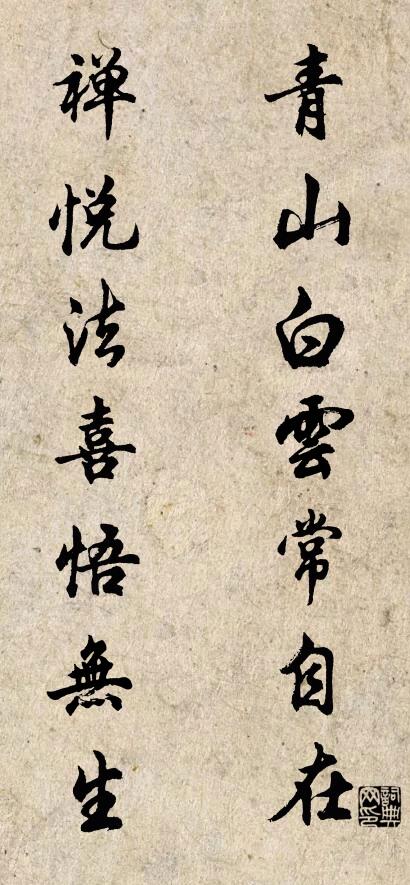 青山白雲常自在
禅悦法喜悟無生
詞典网印